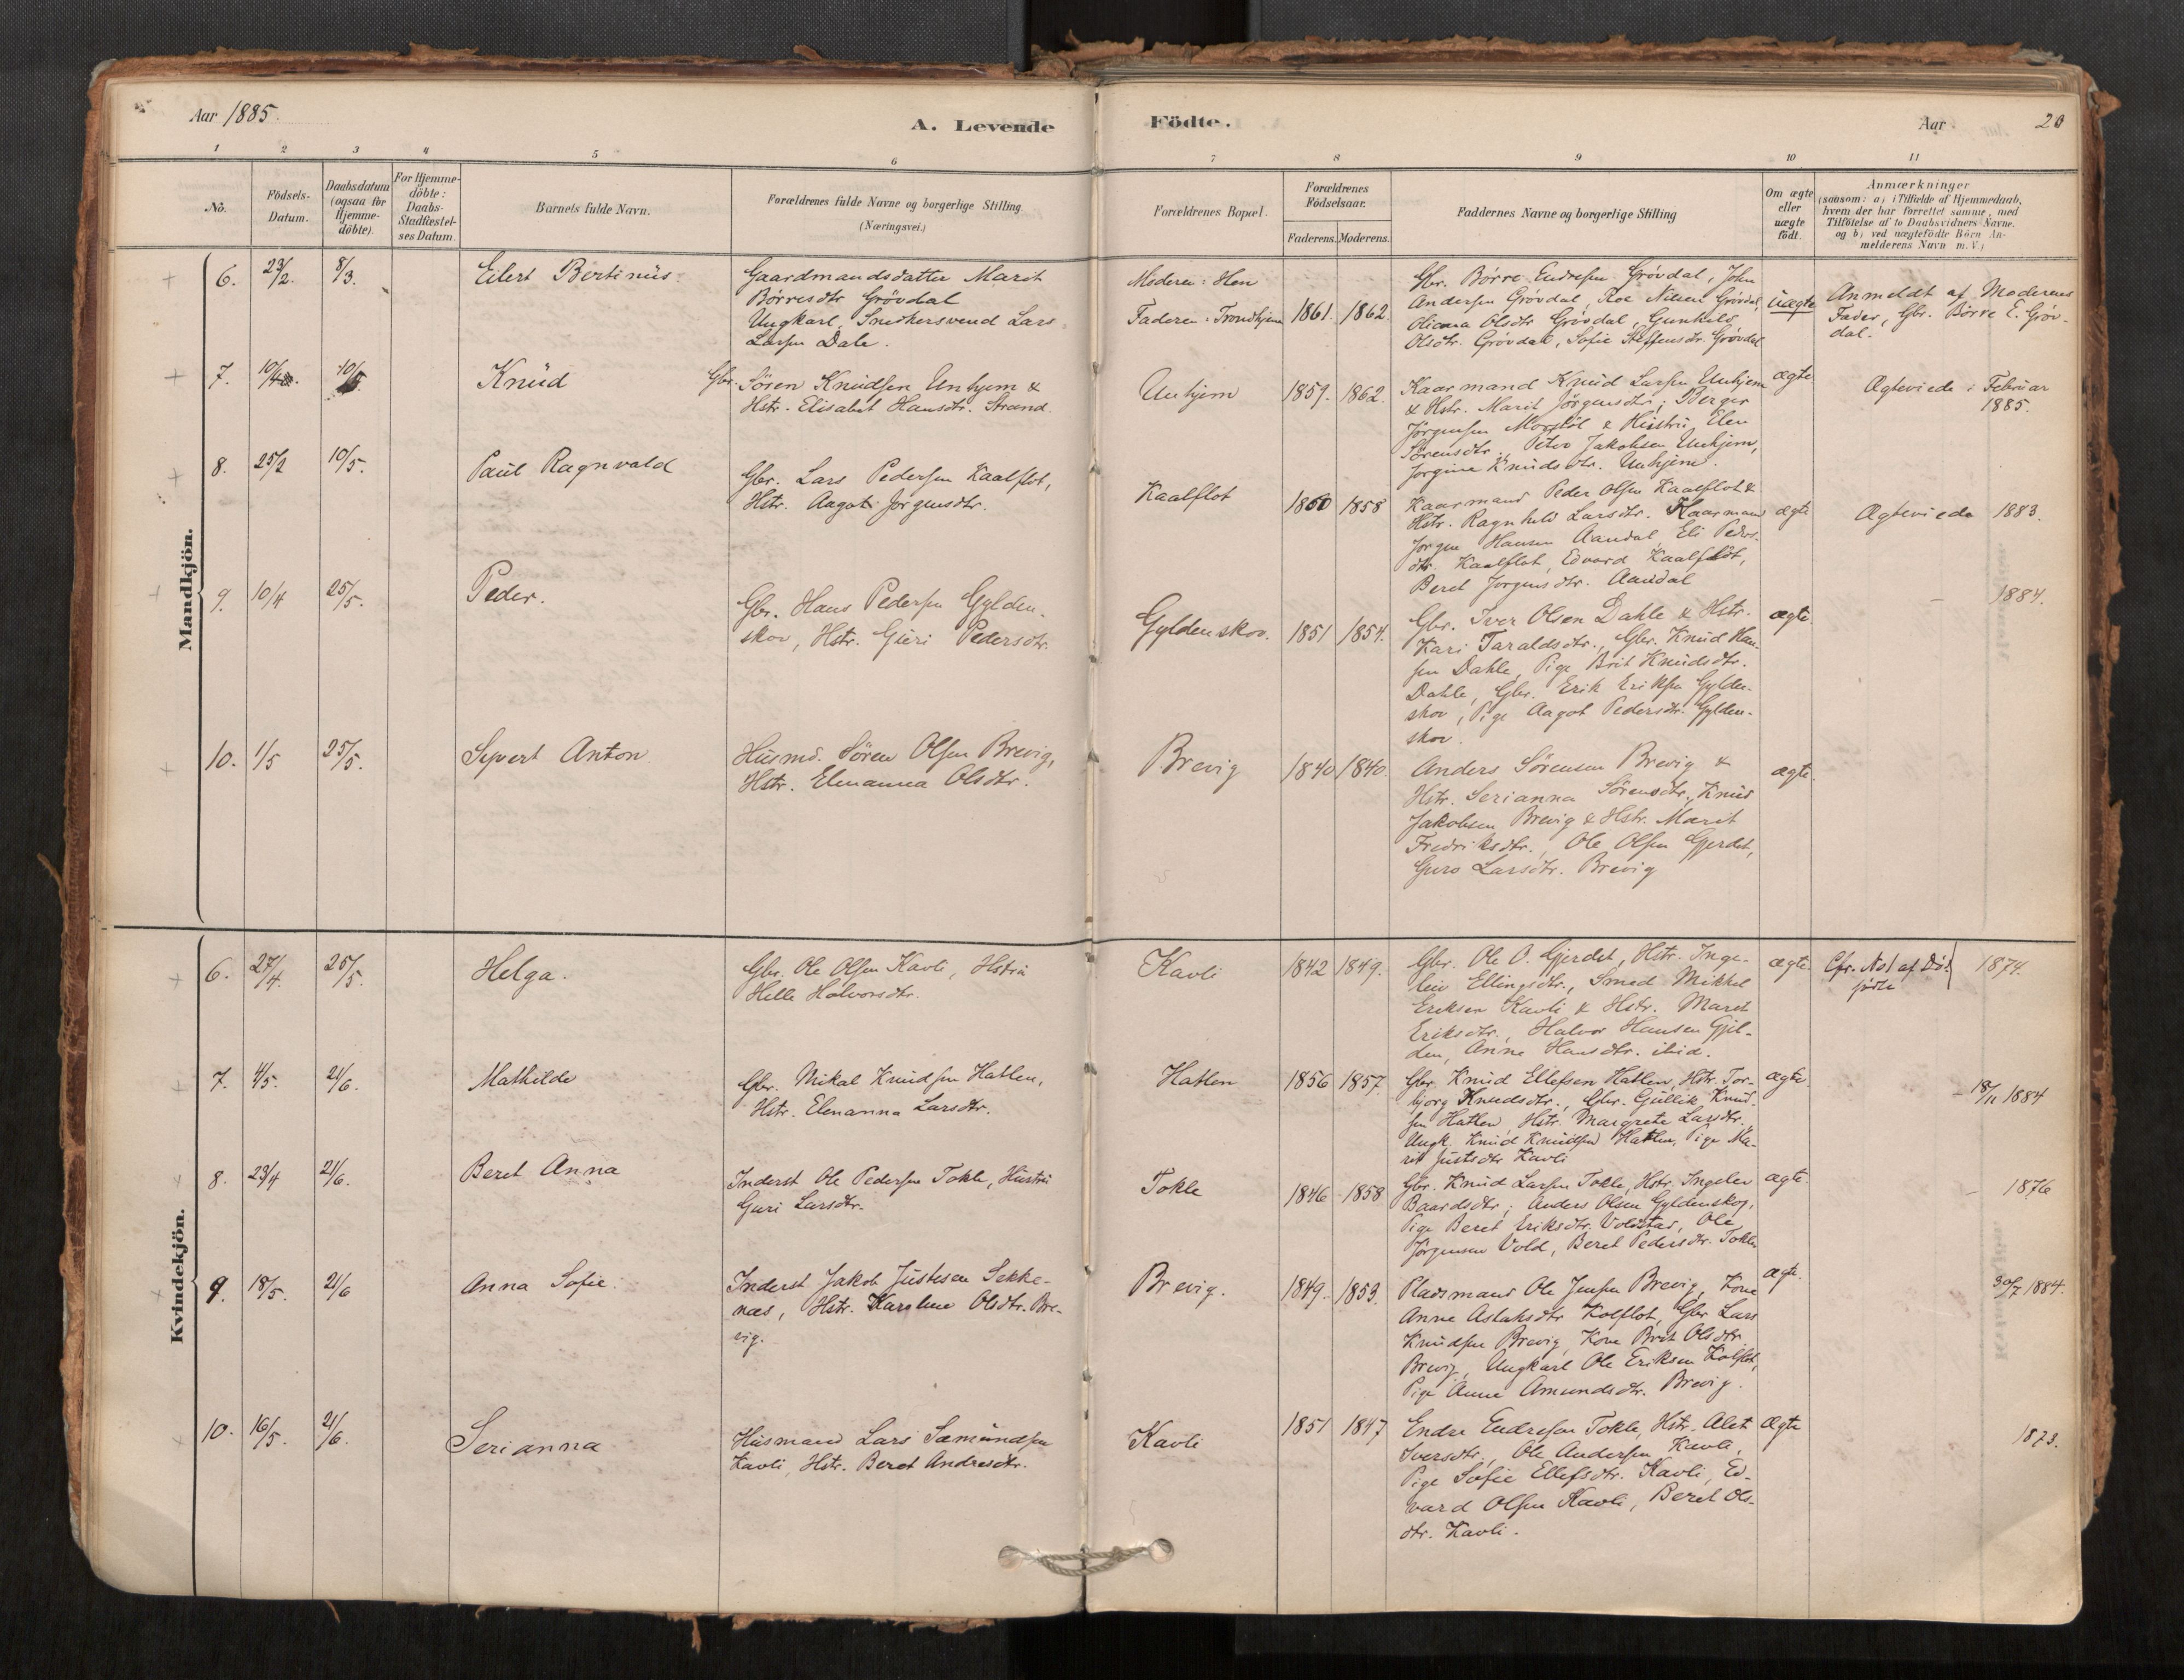 Aar 1885.
A. Levende
Födte.
Aar
20
1 2 3 4 5 6 7 8 9 10 11
No.
Födsels-
Datum.
Daabsdatum
(ogsaa for
Hjemme-
döbte).
For Hjemme-
döbte:
Daabs-
Stadfæstel-
ses Datum.
Barnets fulde Navn.
Forældrenes fulde Navne og borgerlige Stilling.
(Næringsvei.)
Forældrenes Bopæl.
Forældrenes
Födselsaar.
Faderens. Moderens.
Faddernes Navne og borgerlige Stilling
Om ægte
eller
uægte
födt.
Anmærkninger
(saasom: a) i Tilfælde af Hjemmedaab,
hvem der har forrettet samme, med
Tilföielse af to Daabsvidners Navne.
og b) ved uægtefödte Börn An-
melderens Navn m. V.)
Mandkjön.
6. 23/2. 8/3.
Eilert Bertinüs
Gaardmandsdatter Marit
Börresdtr Grövdal
Ungkarl, Snedkersvend Lars
Larsen Dale.
Moderen: Hen
Faderen: Trondhjem
1861. 1862.
Gbr. Börre Endresen Grövdal, John
Andersen Grövdal, Roe Nilsen Grövdal,
Oliana Olsdtr Grövdal, Gunhild
Olsdtr. Grövdal, Sofie Steffensdr. Grövdal
üægte
Anmeldt af Moderens
Fader, Gbr. Börre E. Gröv-
dal.
7. 10/4. 10/5.
Knüd
Gbr. Sören Knüdsen Unhjem &
Hstr. Elisabet Hansdtr. Strand.
Unhjem
1859. 1862.
Kaarmand Knüd Larsen Unhjem
& Hstr. Marit Jörgensdtr; Berger
Jörgensen Morstöl & Hüstrü Elen
Sörensdtr., Peter Jakobsen Unhjem,
Jorgine Knüdsdtr. Unhjem.
ægte
Ægteviede i Februar
1885.
8. 25/2 10/5.
Paul Ragnvald
Gbr. Lars Pedersen Kaalflot,
Hstr. Aagot Jorgensdtr.
Kaalflot
1860 1858
Kaarmand Peder Olsen Kaalflot &
Hstr. Ragnhild Larsdtr. Kaarmand
Jorgen Hansen Aandal, Eli Peders-
dtr. Kaalflot, Edvard Kaalflot,
Beret Jorgensdtr. Aandal
ægte
Ægteviede 1883.
9. 10/4 25/5.
Peder.
Gbr. Hans Pedersen Gylden-
skov, Hstr. Güri Pedersdtr.
Gyldenskov.
1851 1854.
Gbr. Iver Olsen Dahle & Hstr.
Kari Taraldsdtr., Gbr. Knüd Han-
sen Dahle, Pige Brit Knüdsdtr.
Dahle, Gbr. Erik Eriksen Gylden-
skov, Pige Aagot Pedersdtr. Gylden-
skov.
ægte.
– 1884.
10. 1/5 25/5.
Syvert Anton
Hüsmd. Sören Olsen Brevig,
Hstr. Elenanna Olsdtr.
Brevig
1840 1840.
Anders Sörensen Brevig &
Hstr. Serianna Sörensdtr., Knüd
Jakobsen Brevig & Hstr. Marit
Fredriksdtr., Ole Olsen Gjerdet,
Guro Larsdtr. Brevig
ægte.
Kvindekjön.
6. 27/4. 25/5.
Helga.
Gbr. Ole Olsen Kavli, Hstrü
Helle Halvorsdtr.
Kavli
1842 1849.
Gbr. Ole O. Gjerdet, Hstr. Inge-
leiv Ellingsdtr., Smed Mikkel
Eriksen Kavli & Hstr. Marit
Eriksdtr., Halvor Hansen Gjil-
den, Anne Hansdtr. ibid.
ægte.
Cfr. No 1 af Död-
födte
1874.
7. 4/5. 21/6.
Mathilde
Gbr. Mikal Knüdsen Hatlen,
Hstr. Elenanna Larsdtr.
Hatlen
1856 1857.
Gbr. Knüd Ellefsen Hatlen, Hstr. Tor-
bjorg Knudsdtr., Gbr. Güllik Knud-
sen Hatlen, Hstr. Margrete Larsdtr.,
Ungk. Knüd Knüdsen Hatlen, Pige Ma-
rit Justsdtr Kavli
ægte.
– 18/11 1884
8. 23/4 21/6.
Beret Anna
Inderst Ole Pedersen Tokle, Hüstrü
Guri Larsdtr.
Tokle
1846 1858
Gbr. Knud Larsen Tokle, Hstr. Ingeleu
Baardsdtr., Anders Olsen Gyldenskog,
Pige Beret Eriksdtr. Voldstad, Ole
Jörgensen Vold, Beret Pedersdtr. Tokle
ægte.
– 1876
9. 18/5. 21/6
Anna Sofie.
Inderst Jakob Jüstesen Sekke-
næs, Hstr. Karoline Olsdtr. Bre-
vig.
Brevig.
1849. 1853.
Pladsmand Ole Jensen Brevig, Kone
Anne Aslaksdtr Kolflot, Gbr Lars
Knüdsen Brevig, Kone Brit Olsdtr
Brevig, Ungkarl Ole Eriksen Kolflot,
Pige Anne Amundsdtr. Brevig.
ægte.
30/7 1884.
10. 16/5. 21/6.
Serianna
Hüsmand Lars Sæmündsen
Kavli, Hstr. Beret Andresdtr.
Kavli
1851 1847
Endre Endresen Tokle, Hstr. Alet
Iversdtr., Ole Andersen Kavli,
Pige Sofie Ellefsdtr. Kavli, Ed-
vard Olsen Kavli, Beret Ols-
dtr. Kavli.
Ægte
1873.